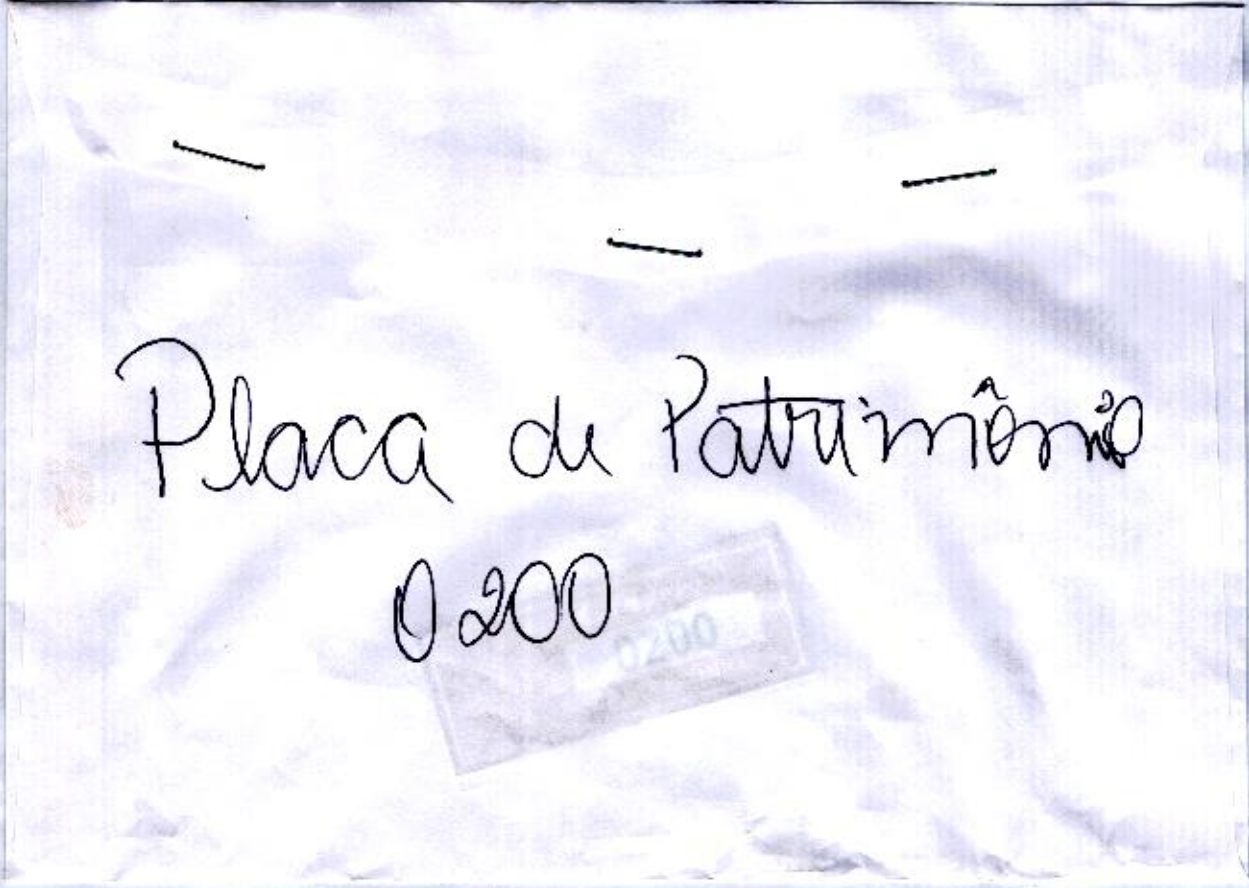 Placa de Patrimônio
0200
0200